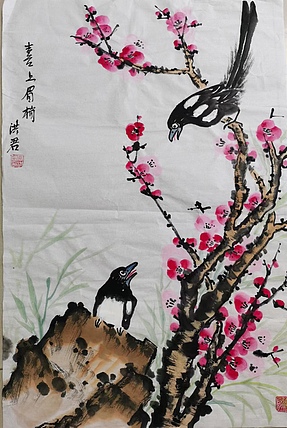 喜上眉梢
洪君